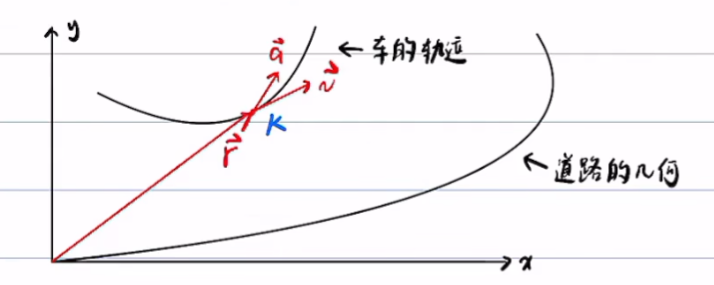 y
a⃗
← 车的轨迹
v⃗
K
r⃗
← 道路的几何
x